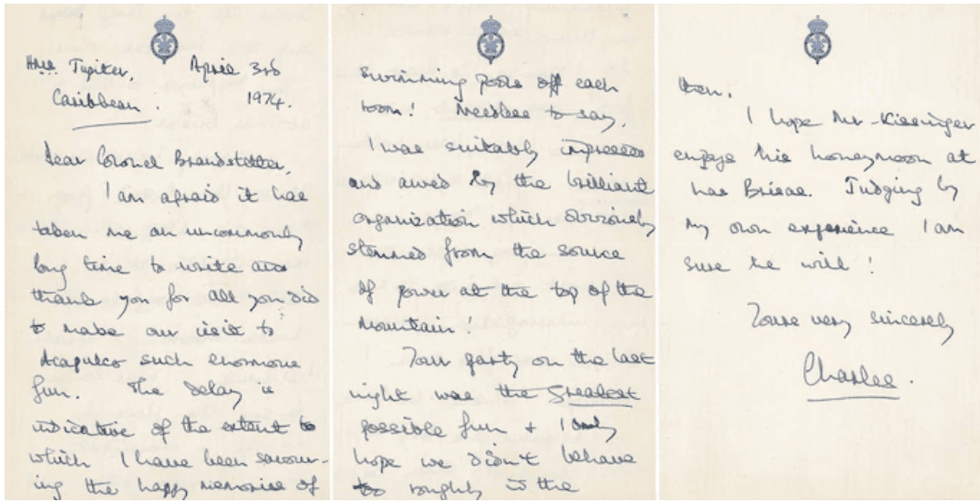 HMS Jupiter, April 3rd
Caribbean. 1974.
Dear Colonel Brandstetter,
I am afraid it has
taken me an uncommonly
long time to write and
thank you for all you did
to make our visit to
Acapulco such enormous
fun. The delay is
indicative of the extent to
which I have been savour-
ing the happy memories of
swimming pools off each
room! Needless to say,
I was suitably impressed
and awed by the brilliant
organization which obviously
stemmed from the source
of power at the top of the
mountain!
Your party on the last
night was the greatest
possible fun + I only
hope we didn't behave
too roughly in the
I hope Mr Kissinger
enjoys his honeymoon at
Las Brisas. Judging by
my own experience I am
sure he will!
Yours very sincerely
Charles.